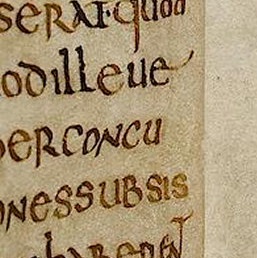 serat· quod
odilleue
perconcu
onessubsis
haberent